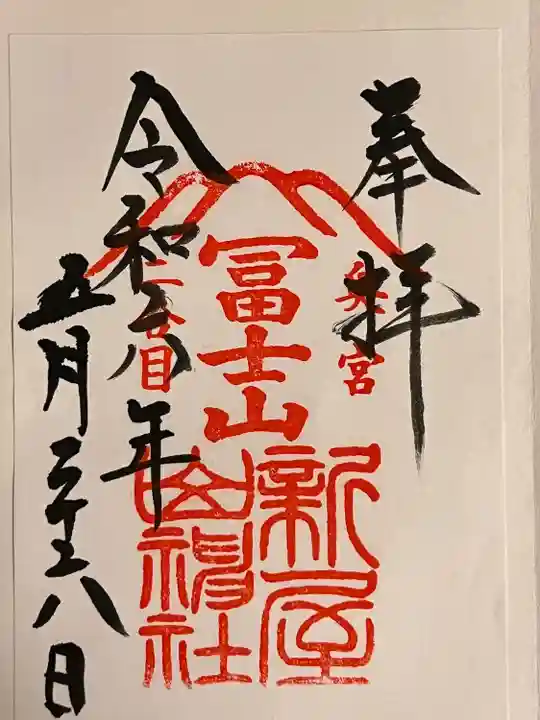 奉拝
奥宮
冨士山
新屋
山神社
二合目
令和六年
五月二十八日